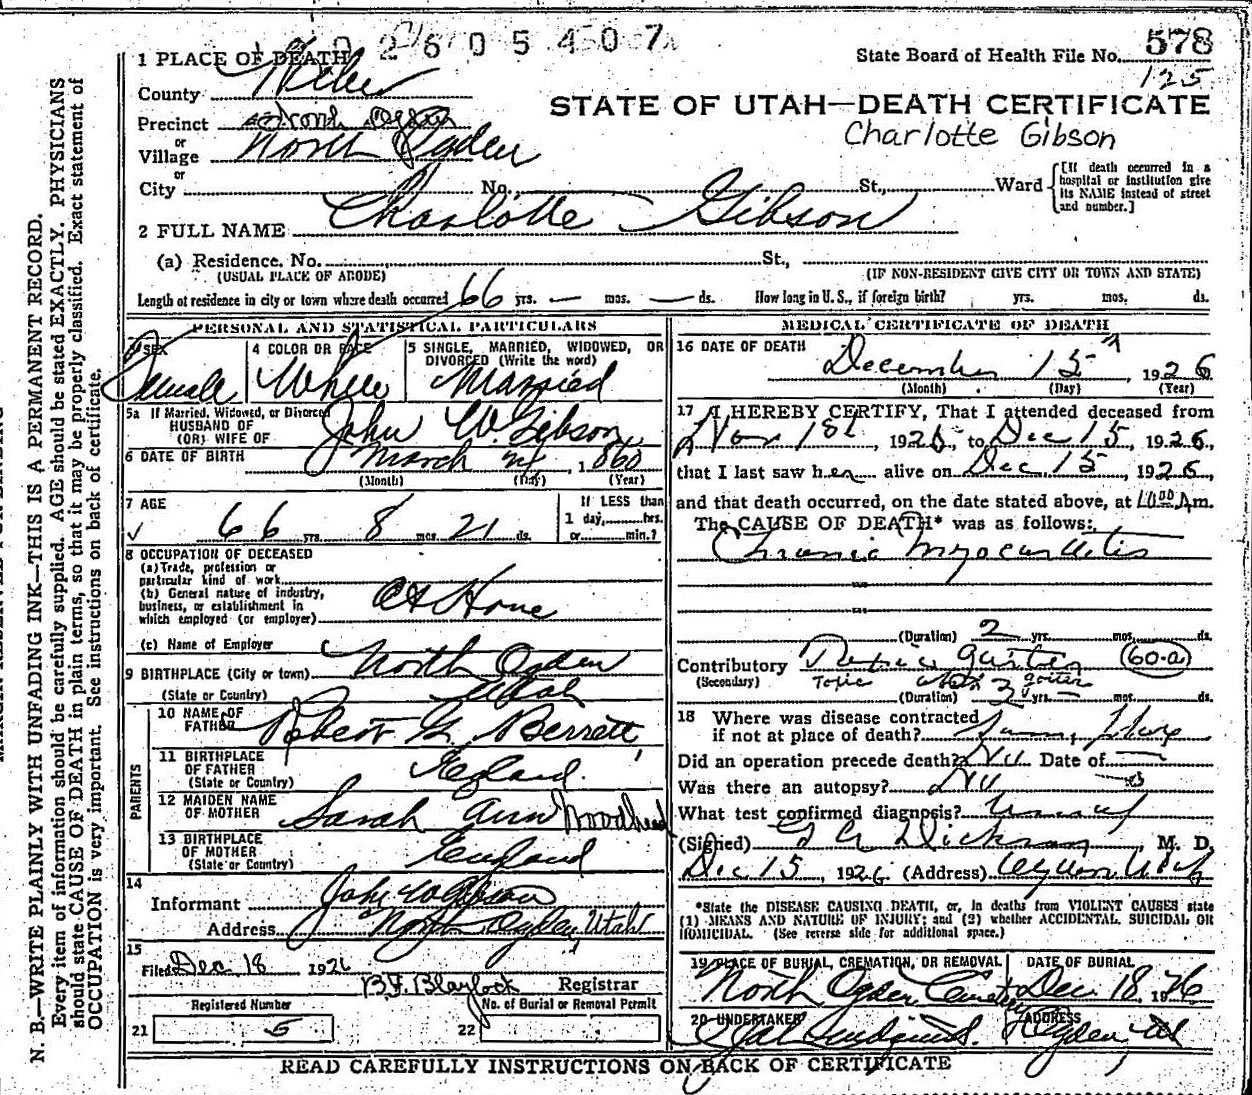 2605407
State Board of Health File No. 578
125
1 PLACE OF DEATH
County Weber
STATE OF UTAH—DEATH CERTIFICATE
Precinct
Charlotte Gibson
or
Village North Ogden
or
City No. St., Ward
[If death occurred in a hospital or institution give its NAME instead of street and number.]
2 FULL NAME Charlotte Gibson
(a) Residence. No. St.,
(USUAL PLACE OF ABODE) (IF NON-RESIDENT GIVE CITY OR TOWN AND STATE)
Length of residence in city or town where death occurred 66 yrs. — mos. — ds. How long in U. S., if foreign birth? yrs. mos. ds.
PERSONAL AND STATISTICAL PARTICULARS
3 SEX Female
4 COLOR OR RACE White
5 SINGLE, MARRIED, WIDOWED, OR DIVORCED (Write the word) Married
5a If Married, Widowed, or Divorced
HUSBAND OF
(OR) WIFE OF John W. Gibson
6 DATE OF BIRTH March 24, 1860
(Month) (Day) (Year)
7 AGE
66 yrs. 8 mos. 21 ds.
If LESS than
1 day, hrs.
or min.?
8 OCCUPATION OF DECEASED
(a) Trade, profession or
particular kind of work
(b) General nature of industry,
business, or establishment in
which employed (or employer) At Home
(c) Name of Employer
9 BIRTHPLACE (City or town) North Ogden
(State or Country) Utah
PARENTS
10 NAME OF
FATHER Robert G. Berrett,
11 BIRTHPLACE
OF FATHER
(State or Country) England.
12 MAIDEN NAME
OF MOTHER Sarah Ann Woodhead
13 BIRTHPLACE
OF MOTHER
(State or Country) England
14
Informant John W Gibson
Address North Ogden, Utah
15
Filed Dec 18 1926
B.F. Blaylock Registrar
Registered Number No. of Burial or Removal Permit
21 5 22
MEDICAL CERTIFICATE OF DEATH
16 DATE OF DEATH
December 15th, 1926
(Month) (Day) (Year)
17 I HEREBY CERTIFY, That I attended deceased from
Nov 1st, 1926, to Dec 15, 1926,
that I last saw her alive on Dec. 15, 1926,
and that death occurred, on the date stated above, at 10:00 A.m.
The CAUSE OF DEATH* was as follows:
Chronic Myocarditis
(Duration) 2 yrs. mos. ds.
Contributory Toxic goiter 60-a
(Secondary) Toxic goiter
(Duration) 3 yrs. — mos. ds.
18 Where was disease contracted
if not at place of death? Same place
Did an operation precede death? No Date of —
Was there an autopsy? No
What test confirmed diagnosis?
(Signed) Dickson, M. D.
Dec 15, 1926 (Address) Ogden Utah
*State the DISEASE CAUSING DEATH, or, in deaths from VIOLENT CAUSES state
(1) MEANS AND NATURE OF INJURY; and (2) whether ACCIDENTAL, SUICIDAL OR
HOMICIDAL. (See reverse side for additional space.)
19 PLACE OF BURIAL, CREMATION, OR REMOVAL DATE OF BURIAL
North Ogden Cemetery Dec 18 1926
20 UNDERTAKER ADDRESS
Lindquist. Ogden, Ut
READ CAREFULLY INSTRUCTIONS ON BACK OF CERTIFICATE
N. B.—WRITE PLAINLY WITH UNFADING INK—THIS IS A PERMANENT RECORD.
Every item of information should be carefully supplied. AGE should be stated EXACTLY. PHYSICIANS
should state CAUSE OF DEATH in plain terms, so that it may be properly classified. Exact statement of
OCCUPATION is very important. See instructions on back of certificate.